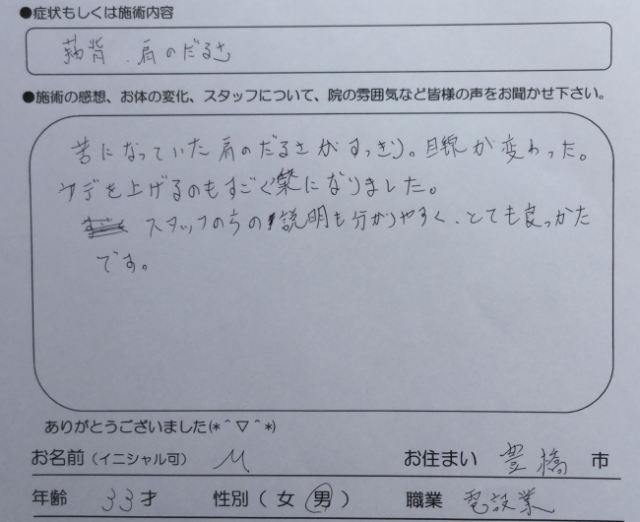 ●症状もしくは施術内容
猫背.肩のだるさ
●施術の感想、お体の変化、スタッフについて、院の雰囲気など皆様の声をお聞かせ下さい。
苦になっていた肩のだるさがすっきり。目線が変わった。
ウデを上げるのもすごく楽になりました。
スタッフのちの説明も分かりやすく、とても良かった
です。
ありがとうございました(*＾▽＾*)
お名前(イニシャル可) M お住まい 豊橋 市
年齢 33才 性別(女 男) 職業 電設業